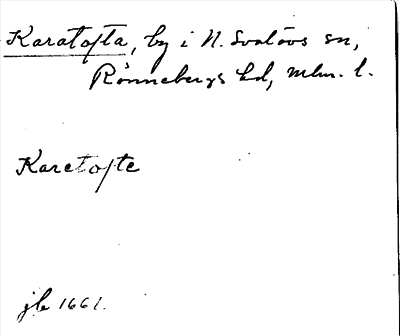 Karatofta, by i N. Svalövs sn,
Rönnebergs hd, Mlm. l.
Karetofte
jb 1661.